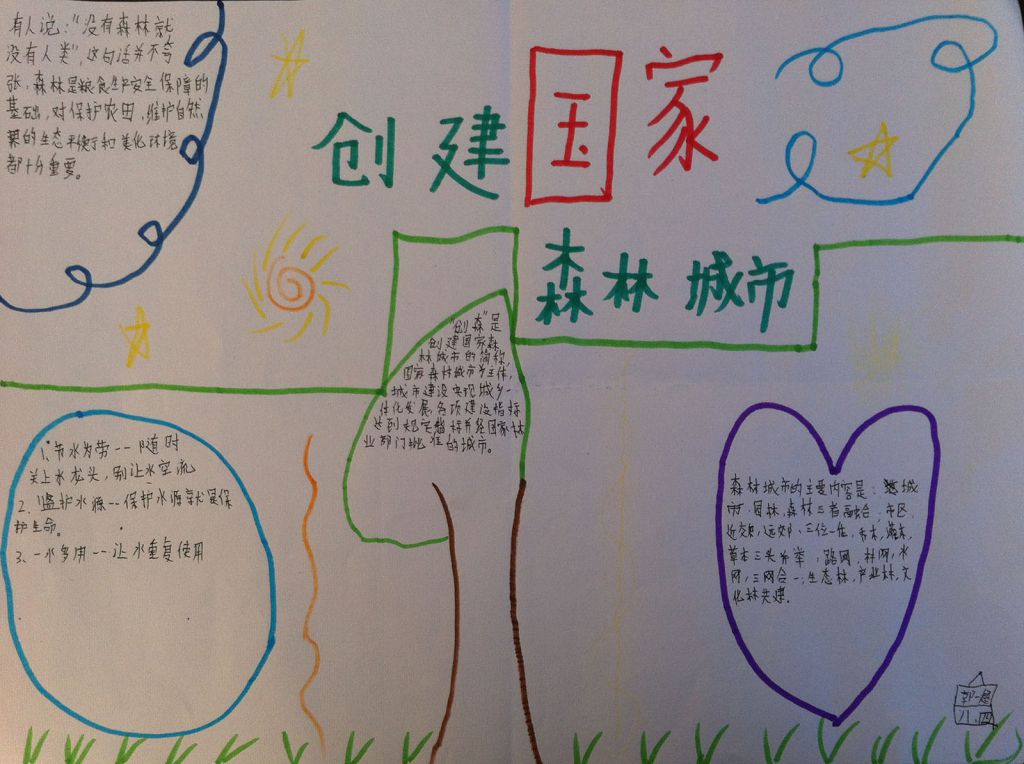 有人说："没有森林就
没有人类",这句话并不夸
张,森林是粮食生产安全保障的
基础,对保护农田,维护自然
界的生态平衡和美化环境
都十分重要。
创建国家
森林城市
"创森"是
创建国家森
林城市的简称,
国家森林城市
城市建设实现城乡一
体化发展,各项建设指标
达到规定指标并经国家林
业部门批准的城市。
1、节水为荣--随时
关上水龙头,别让水空流
2、监护水源--保护水源就是保
护生命。
3、一水多用--让水重复使用
森林城市的主要内容是:
城市,园林,森林三者融合,市区,
近郊,远郊,三位一体,乔木,灌木,
草本三头并举,路网,林网,水
网,三网合一;生态林,产业林,文
化林共建.
八、四